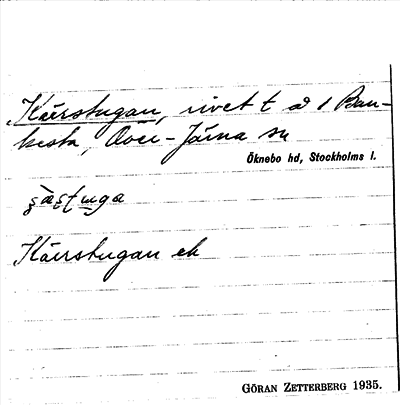 Kärrstugan, rivet t å 1 Ban-
kesta, Över-Järna sn
Öknebo hd, Stockholms l.
Kärrstugan ek
GÖRAN ZETTERBERG 1935.